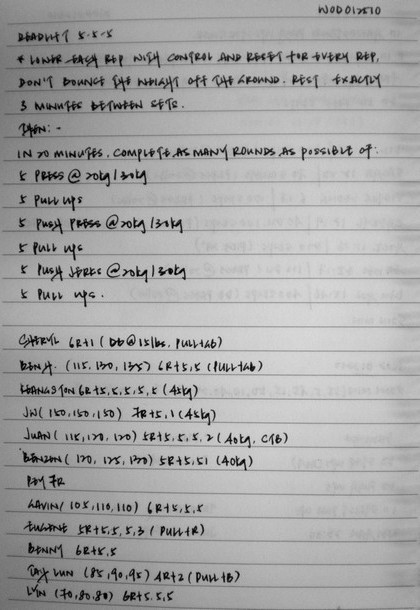 WOD 012510
DEADLIFT 5-5-5
* LOWER EACH REP WITH CONTROL AND RESET FOR EVERY REP.
DON'T BOUNCE THE WEIGHT OFF THE GROUND. REST EXACTLY
3 MINUTES BETWEEN SETS.
THEN:-
IN 20 MINUTES. COMPLETE AS MANY ROUNDS AS POSSIBLE OF:
5 PRESS @ 20kg/30kg
5 PULL UPS
5 PUSH PRESS @ 20kg/30kg
5 PULL UPS
5 PUSH JERKS @ 20kg/30kg
5 PULL UPS.
CHERYL 6R+1 (DB @ 15lbs, PULL+GB)
BENJI. (115, 130, 135) 6R+5,5 (PULL+GB)
KEANGSTON 6R+5,5,5,5,5 (45kg)
JW (150,150,150) 7R+5,1 (45kg)
JUAN (115,120,120) 5R+5,5,5,2 (40kg, CTB)
BENZON (120, 125, 130) 5R+5,51 (40kg)
ROY 7R
GAVIN (105,110,110) 6R+5,5,5
EUGENE 5R+5,5,5,3 (PULL+R)
BENNY 6R+5,5
TAY LUN (85,90,95) 4R+2 (PULL+B)
LYN (70,80,80) 6R+5,5,5